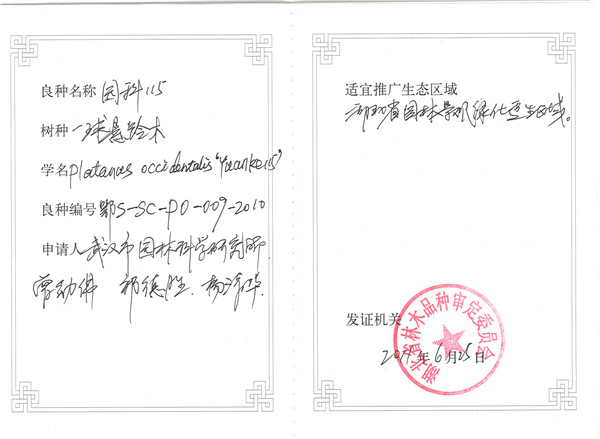 良种名称 园科115
树种 一球悬铃木
学名 Platanus occidentalis 'Yuanke115'
良种编号 鄂S-SC-PO-009-2010
申请人 武汉市园林科学研究所
章幼佛 祁德胜
适宜推广生态区域
湖北省园林景观绿化适生区域。
发证机关
湖北省林木品种审定委员会
2011年6月25日